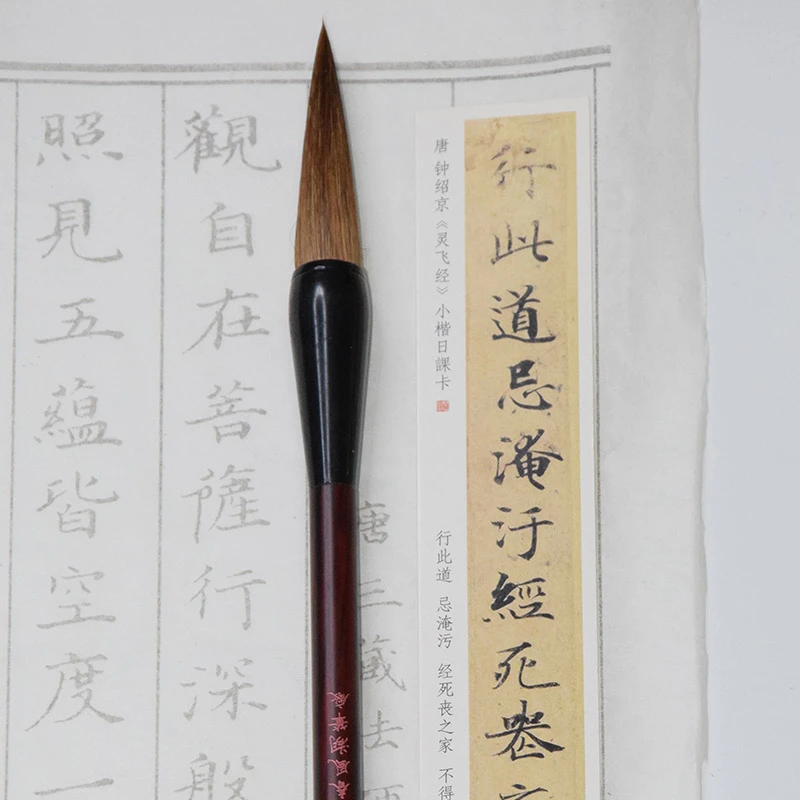 行此道忌淹汙經死喪
唐 钟绍京《灵飞经》小楷日課卡
行此道 忌淹污 经死丧之家 不得
唐三藏法
觀自在菩薩行深般
照見五蘊皆空度一
風湖筆